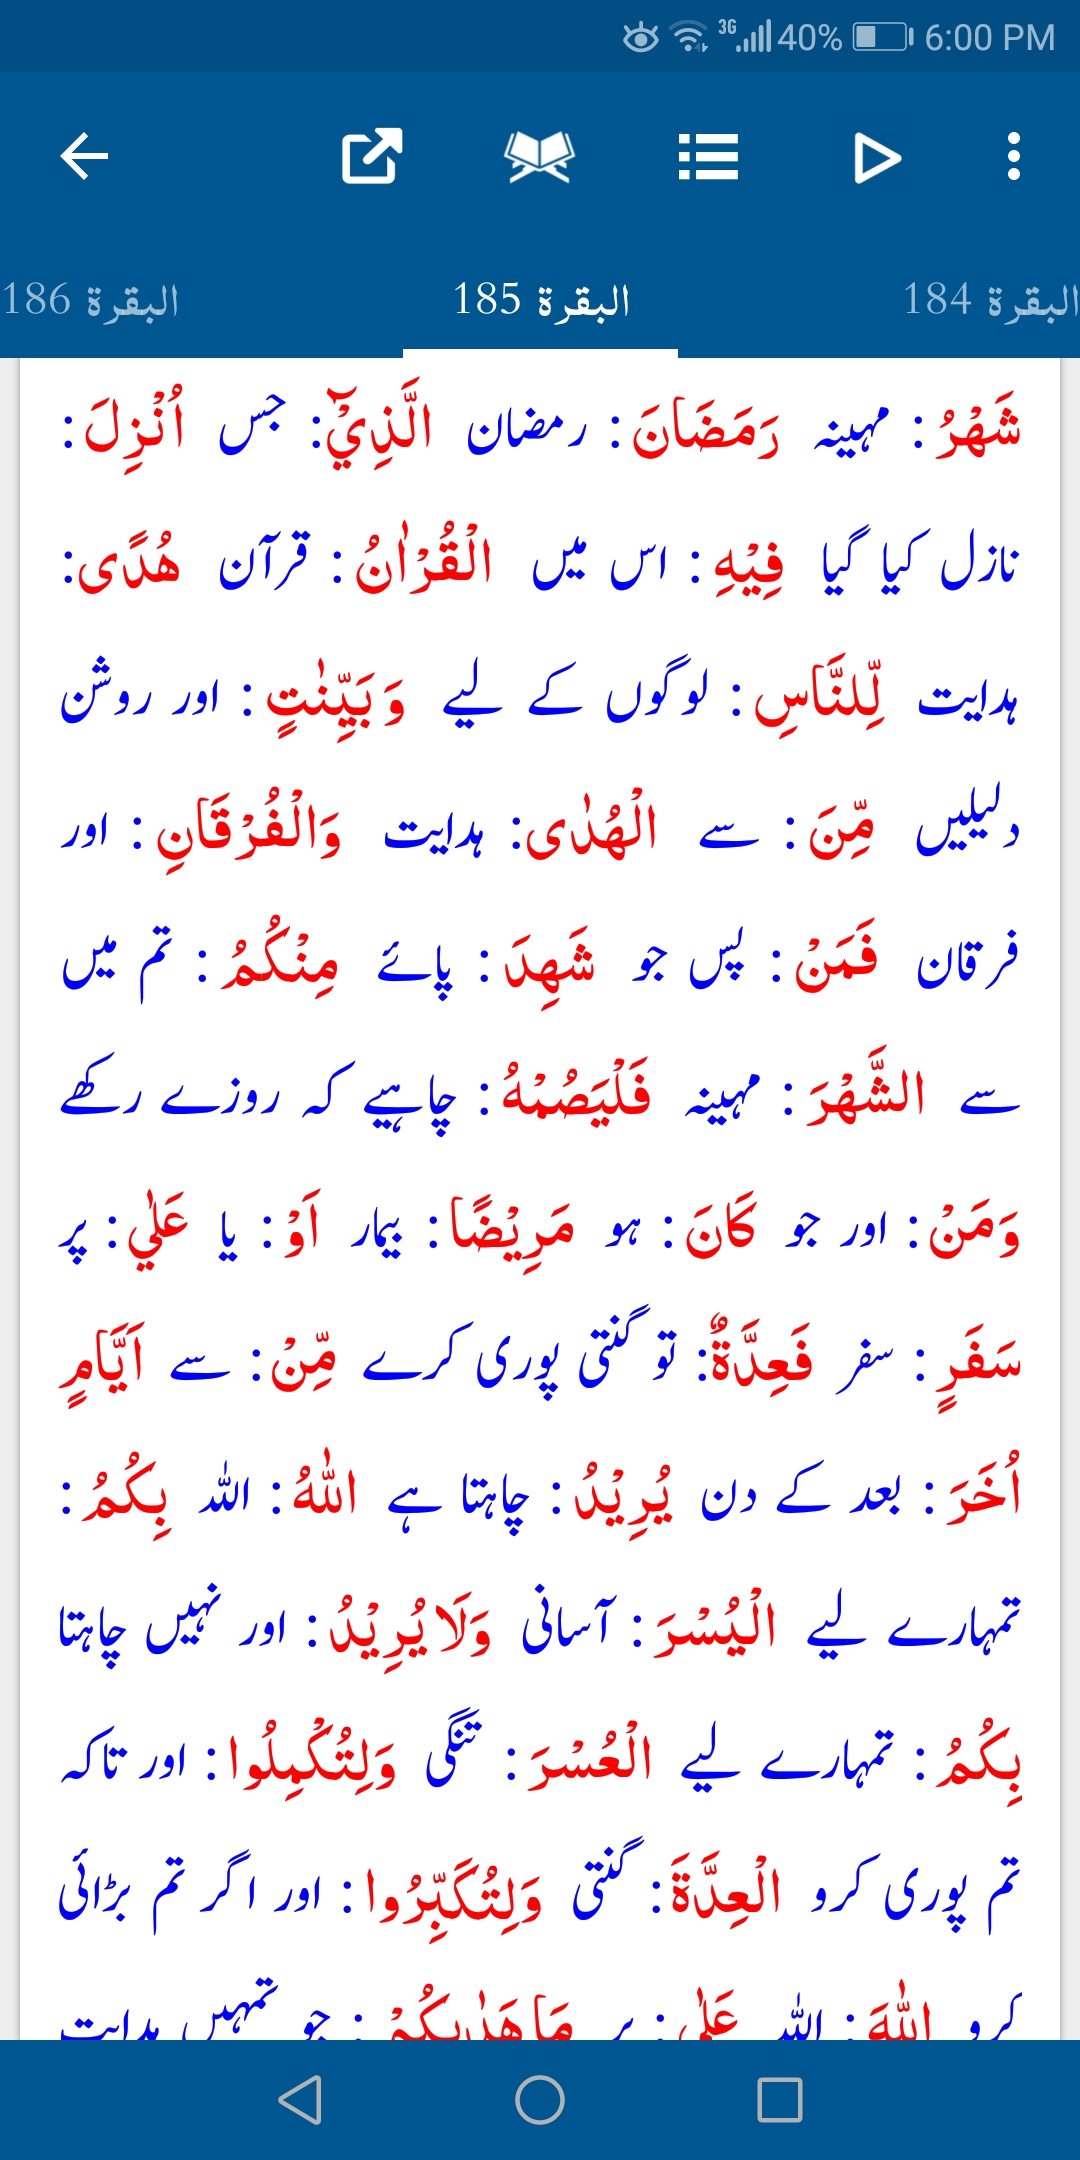 3G 40% 6:00 PM
البقرة 184 البقرة 185 البقرة 186
شَهْرُ : مہینہ رَمَضَانَ : رمضان الَّذِيْٓ : جس اُنْزِلَ :
نازل کیا گیا فِيْهِ : اس میں الْقُرْاٰنُ : قرآن ھُدًى :
ہدایت لِّلنَّاسِ : لوگوں کے لیے وَ بَيِّنٰتٍ : اور روشن
دلیلیں مِّنَ : سے الْهُدٰى : ہدایت وَالْفُرْقَانِ : اور
فرقان فَمَنْ : پس جو شَهِدَ : پائے مِنْكُمُ : تم میں
سے الشَّهْرَ : مہینہ فَلْيَصُمْهُ : چاہیے کہ روزے رکھے
وَمَنْ : اور جو كَانَ : ہو مَرِيْضًا : بیمار اَوْ : یا عَلٰي : پر
سَفَرٍ : سفر فَعِدَّةٌ : تو گنتی پوری کرے مِّنْ : سے اَيَّامٍ
اُخَرَ : بعد کے دن يُرِيْدُ : چاہتا ہے اللّٰهُ : اللہ بِكُمُ :
تمہارے لیے الْيُسْرَ : آسانی وَلَا يُرِيْدُ : اور نہیں چاہتا
بِكُمُ : تمہارے لیے الْعُسْرَ : تنگی وَلِتُكْمِلُوا : اور تاکہ
تم پوری کرو الْعِدَّةَ : گنتی وَلِتُكَبِّرُوا : اور اگر تم بڑائی
کرو اللّٰهَ : اللہ عَلٰي : پر مَا ھَدٰىكُمْ : جو تمہیں ہدایت